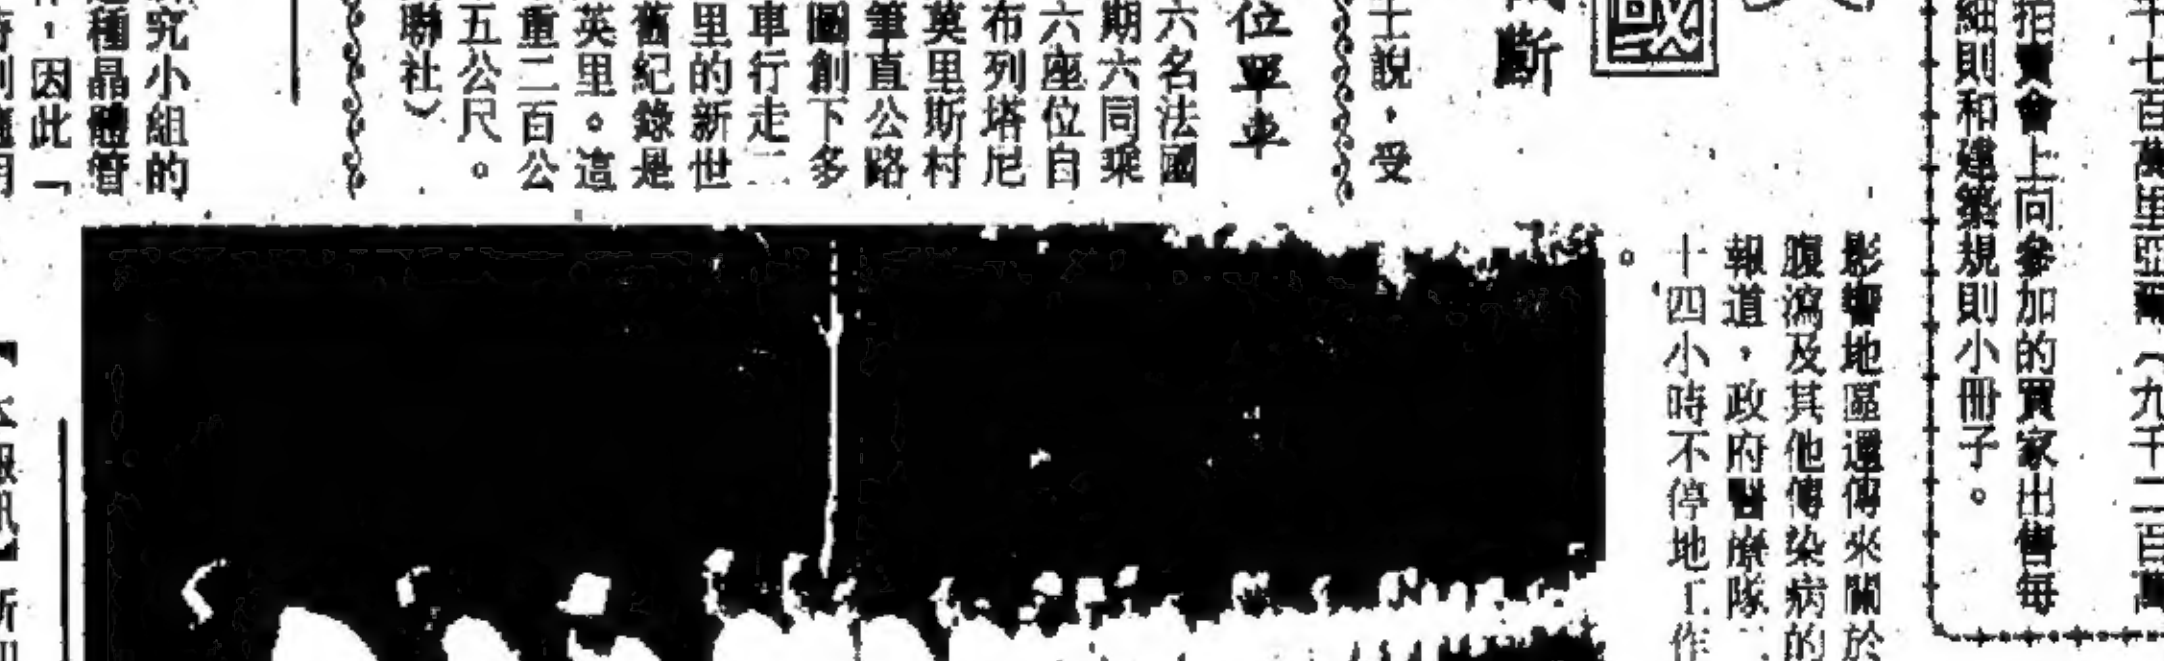 千七百萬里亞爾（九千二百萬
拍賣會上向參加的買家出售每
細則和建築規則小冊子。
國
斷
影響地區還傳來關於
腹瀉及其他傳染病的
報道，政府醫療隊二
十四小時不停地工作
。
士說，受
位單車
六名法國
期六同乘
六座位自
布列塔尼
莫里斯村
筆直公路
圖創下多
車行走一
里的新世
舊紀錄是
英里。這
重二百公
五公尺。
聯社）
究小組的
種晶體管
，因此「